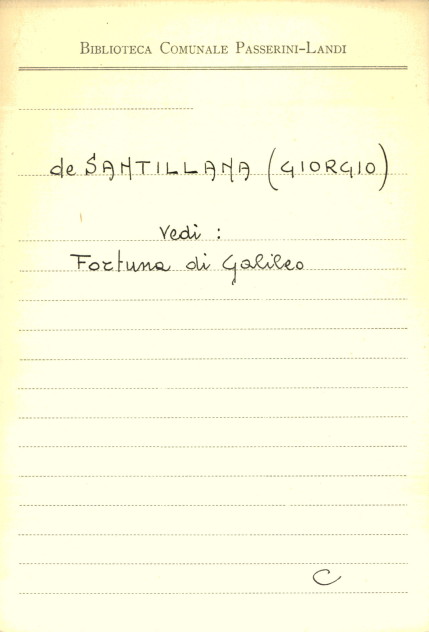 BIBLIOTECA COMUNALE PASSERINI-LANDI
de SANTILLANA (GIORGIO)
Vedi :
Fortuna di Galileo
C